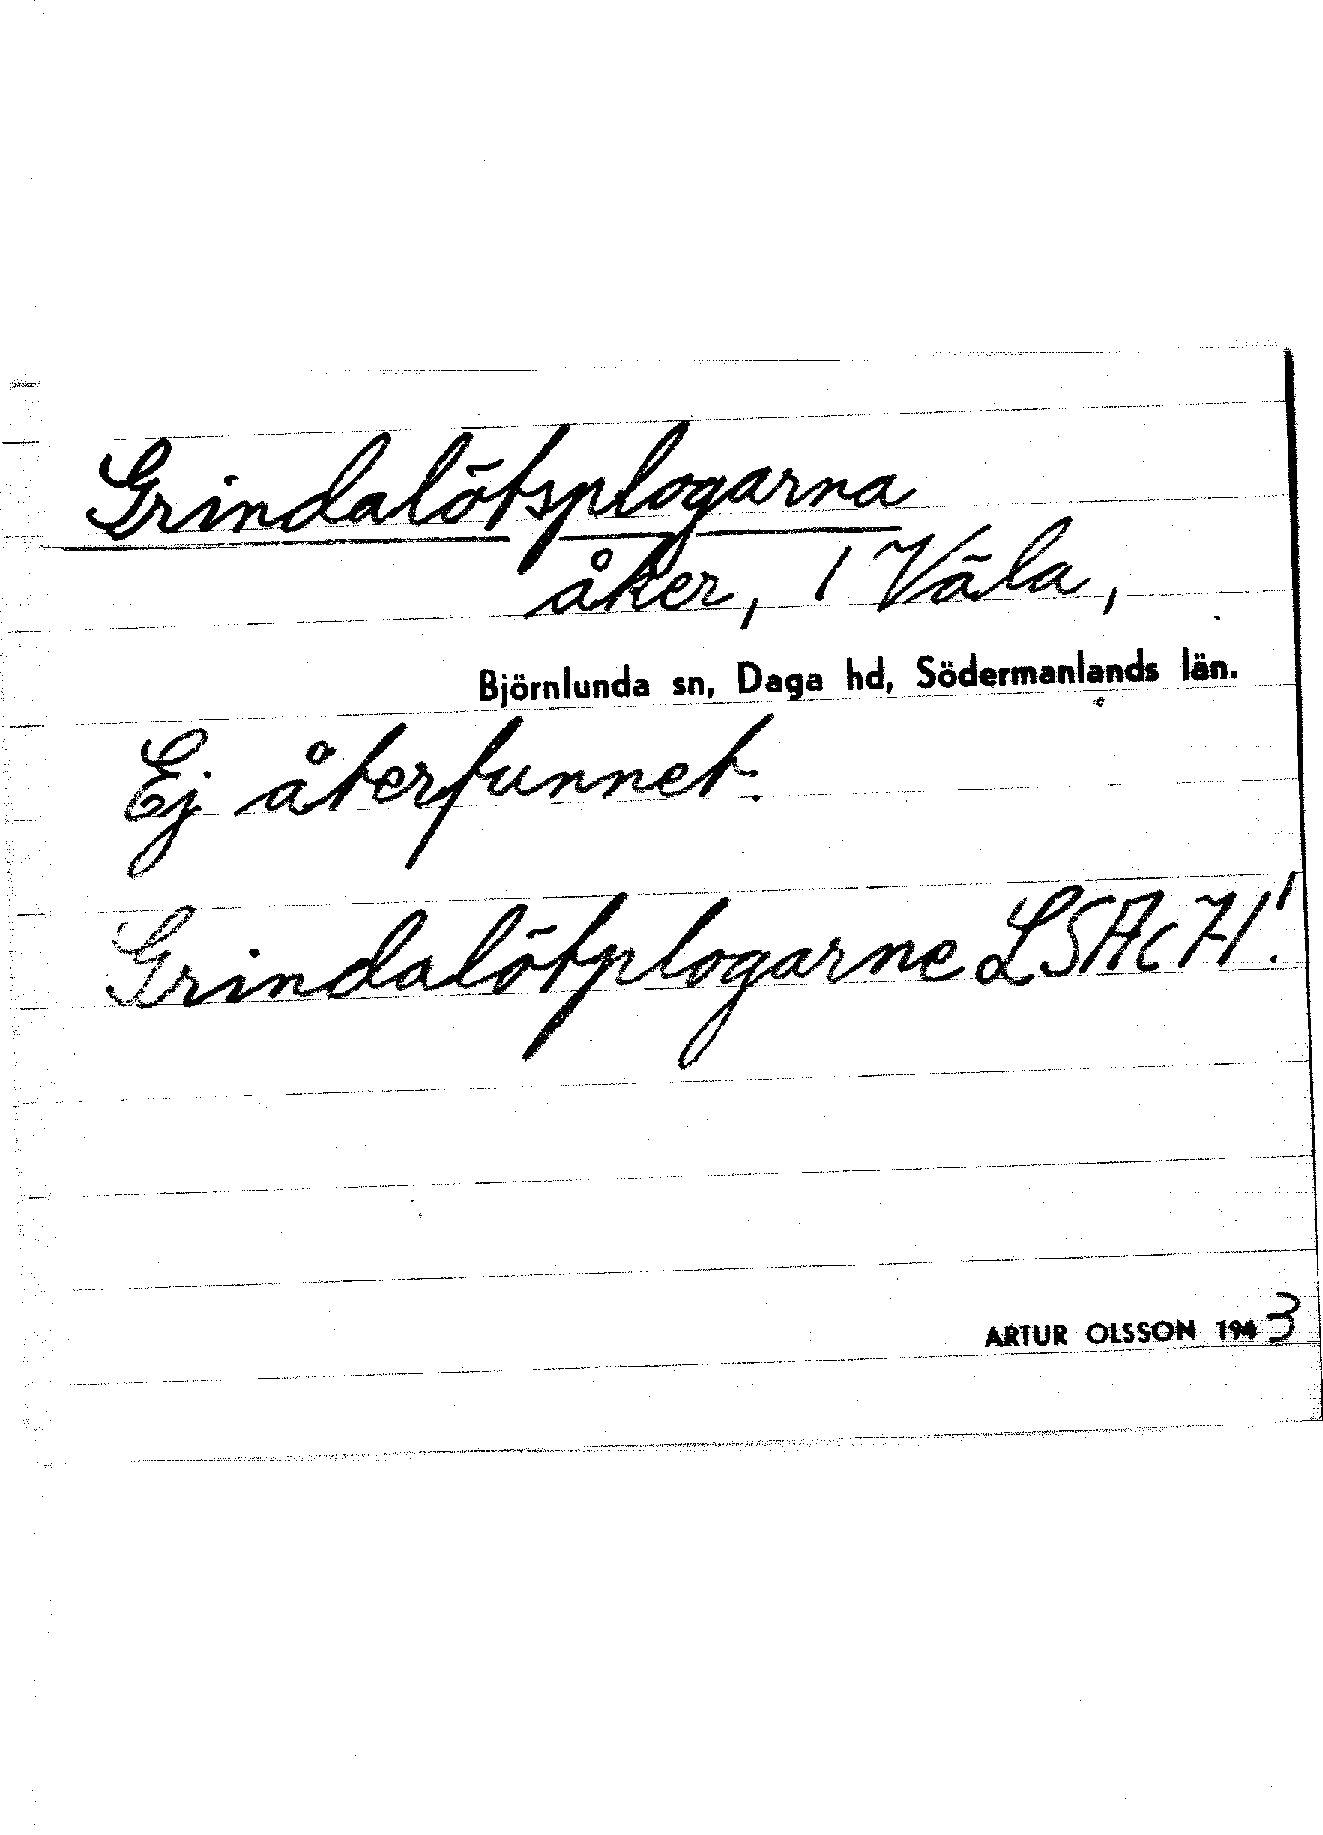 Grindalötsplogarna
åker, 1 Väla,
Björnlunda sn, Daga hd, Södermanlands län.
Ej återfunnet.
Grindalötplogarne LSAc 71!
ARTUR OLSSON 1943